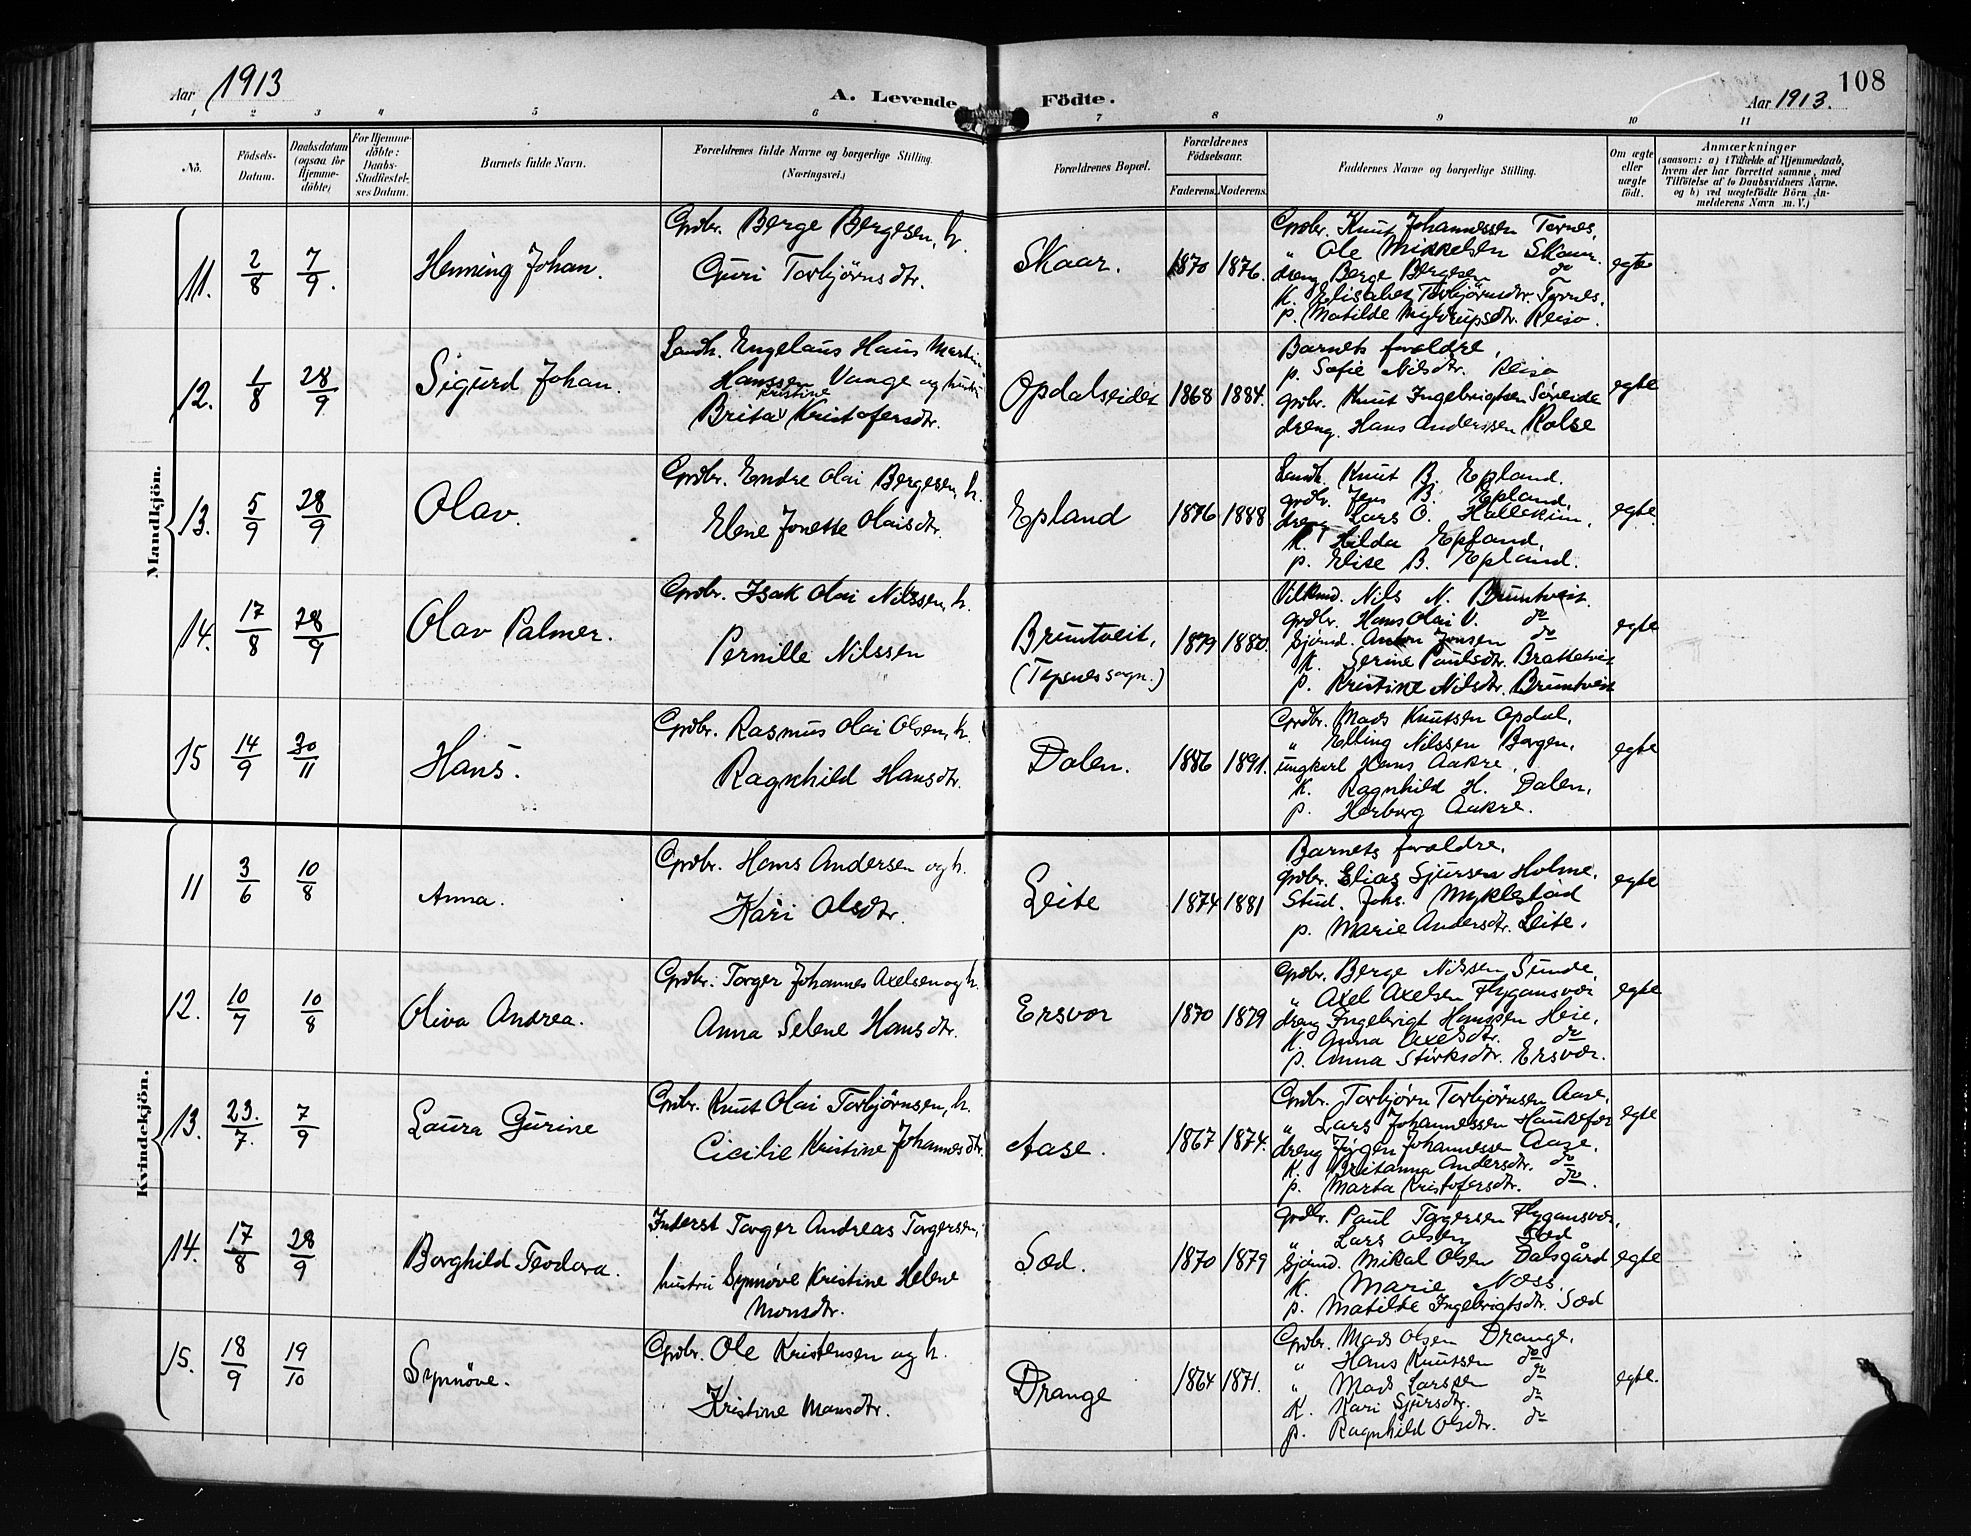 Aar 1913
A. Levende
Födte.
108
Aar 1913.
1 2 3 4 5 6 7 8 9 10 11
No.
Födsels-
Datum.
Daabsdatum
(ogsaa for
Hjemme-
döbte)
For Hjemme-
döbte:
Daabs-
Stadfæstel-
ses Datum.
Barnets fulde Navn.
Forældrenes fulde Navne og borgerlige Stilling.
(Næringsvei.)
Forældrenes Bopæl.
Forældrenes
Födselsaar.
Faderens.
Moderens.
Faddernes Navne og borgerlige Stilling.
Om ægte
eller
uægte
födt.
Anmærkninger
(saasom: a) i Tilfælde af Hjemmedaab,
hvem der har forrettet samme, med
Tilföielse af to Daabsvidners Navne,
og b) ved uægtefödte Börn An-
melderens Navn m. V.)
Mandkjön.
11. 2/8 7/9. Henning Johan.
Grdbr. Berge Bergesen, h.
Guri Torbjörnsdtr.
Skaar. 1870 1876.
Grdbr. Knut Johannessen Ternes,
" Ole Mikkelsen Skaar.
dreng Berge Bergesen do
K. Elisabet Torbjörnsdtr. Ternes.
p. Matilde Reisa.
egte
12. 1/8 28/9 Sigurd Johan.
Landh. Engelaus Haus Martin
Hanssen Vange og hustru
Kristine
Brita Kristofersdtr.
Opdalseidet 1868 1884.
Barnets forældre,
p. Sofie Nilsdtr. Reisa
grdbr. Knut Ingebrigtsen Söreide
dreng. Hans Anderssen Rolse
egte
13. 5/9 28/9 Olav.
Grdbr. Endre Olai Bergesen, h.
Elene Jonette Olaisdtr.
Epland 1876 1888
Landh. Knut B. Epland.
grdbr. Jens B. Epland,
dreng Lars O.
K. Hilda Epland,
p. Elise B. Epland.
egte.
14. 17/8 28/9 Olav Palmer.
Grdbr. Isak Olai Nilssen, h.
Pernille Nilssen
Bruntveit,
1879 1880.
Nils N. Bruntveit.
grdbr. Hans Olai V. do
Sjömd. Anton Jonsen do
K. Serine Paulsdtr. Brattetveit
p. Kristine Nilsdtr. Bruntveit
egte
15 14/9 30/11 Hans.
Grdbr. Rasmus Olai Olsen, h.
Ragnhild Hansdtr.
Dalen. 1886 1891.
Grdbr. Mads Knutsen Opdal,
" Elling Nilssen Borgen,
ungkarl Hans Aakre,
K. Ragnhild H. Dalen,
p. Herborg Aakre.
egte
Kvindekjön.
11 3/6 10/8 Anna.
Grdbr. Hans Andersen og h.
Kari Olsdtr.
Leite 1874 1881
Barnets forældre,
grdbr. Elias Sjursen Holme,
Stud. Johs. Myklestad
p. Marie Andersdtr. Leite.
egte
12. 10/7 10/8 Oliva Andrea.
Grdbr. Torger Johannes Axelsen og h.
Anna Selene Hansdtr.
Ersvær 1870 1879
Grdbr. Berge Nilssen Sunde,
" Axel Axelsen Flygansvær
dreng Ingebrigt Hanssen Heie,
K. Anna Axelsdtr. do
p. Anna Störksdtr. Ersvær.
egte
13. 23./7. 7/9 Laura Gurine
Grdbr. Knut Olai Torbjörnsen, h.
Cicilie Kristine Johannesdtr.
Aase. 1867 1874.
Grdbr. Torbjörn Torbjörnsen Aase,
" Lars Johannessen
dreng Jörgen Johannessen Aase,
K. Britanna Andersdtr. do
p. Marta Kristofersdtr. do.
egte
14. 17/8 28/9 Borghild Teodora.
Inderst Torger Andreas Torgersen,
hustru Synnöve Kristine Helene
Monsdtr.
Sæd. 1870 1879
grdbr. Paul Torgersen Flygansvær,
" Lars Olsen Sæd
Sjömd. Mikal Olsen Dalsgård
K. Marie Næss,
p. Matilde Ingebrigtsdtr. Sæd
egte
15. 18/9 19/10 Synnöve.
Grdbr. Ole Kristensen og h.
Kristine Mansdtr.
Drange 1864 1871.
Grdbr. Mads Olsen Drange,
" Hans Knutsen do
" Mads Larssen do
K. Kari Sjursdtr. do
p. Ragnhild Olsdtr. do
egte.